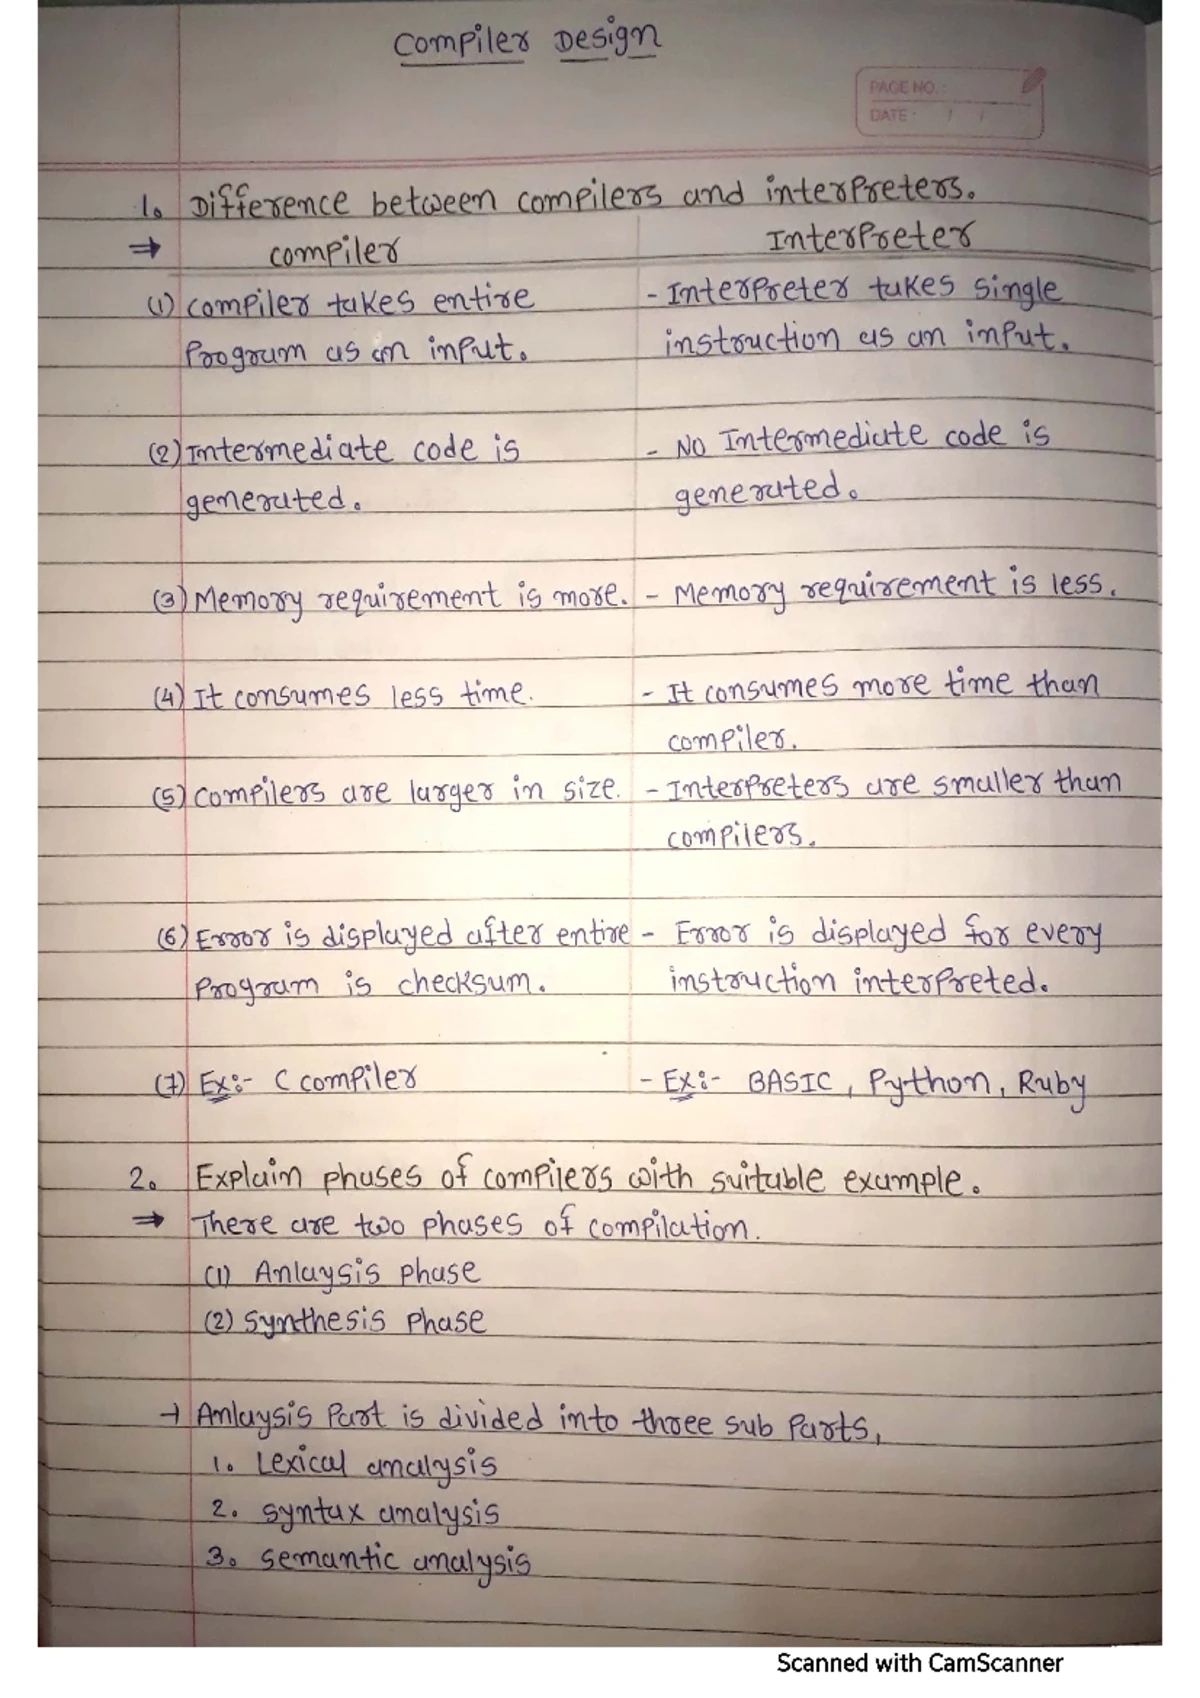 Compiler Design
PAGE NO.:
DATE: / /
1. Difference between compilers and interpreters.
⇒ compiler Interpreter
(1) compiler takes entire - Interpreter takes single
Program as an input. instruction as an input.
(2) Intermediate code is - No Intermediate code is
generated. generated.
(3) Memory requirement is more. - Memory requirement is less.
(4) It consumes less time. - It consumes more time than
compiler.
(5) compilers are larger in size. - Interpreters are smaller than
compilers.
(6) Error is displayed after entire - Error is displayed for every
Program is checksum. instruction interpreted.
(7) Ex:- C compiler - Ex:- BASIC, Python, Ruby
2. Explain phases of compilers with suitable example.
⇒ There are two phases of compilation.
(1) Anlaysis phase
(2) Synthesis phase
→ Anlaysis Part is divided into three sub Parts,
1. Lexical analysis
2. syntax analysis
3. semantic analysis
Scanned with CamScanner